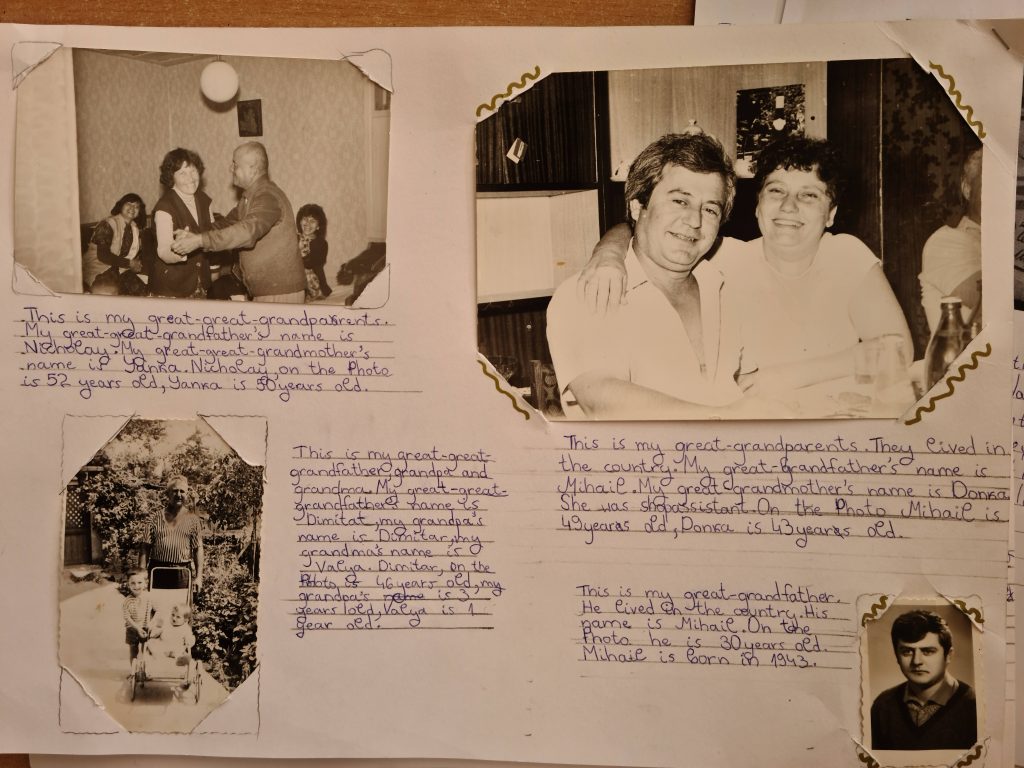 This is my great-great-grandparents.
My great-great-grandfather's name is
Nicholay. My great-great-grandmother's
name is Yanka. Nicholay, on the Photo
is 52 years old, Yanka is 50 years old.
This is my great-great-
grandfather, grandpa and
grandma. My great-great-
grandfather's name is
Dimitat, my grandpa's
name is Domitar, my
grandma's name is
Valya. Dimitar, on the
Photo, is 46 years old, my
grandpa's name is 3
years lold, Valya is 1
year old.
This is my great-grandparents. They lived in
the country. My great-grandfather's name is
Mihail. My great-grandmother's name is Donka.
She was shopassistant. On the Photo Mihail is
49 years old, Donka is 43 years old.
This is my great-grandfather.
He lived on the country. His
name is Mihail. On the
Photo he is 30 years old.
Mihail is born in 1943.